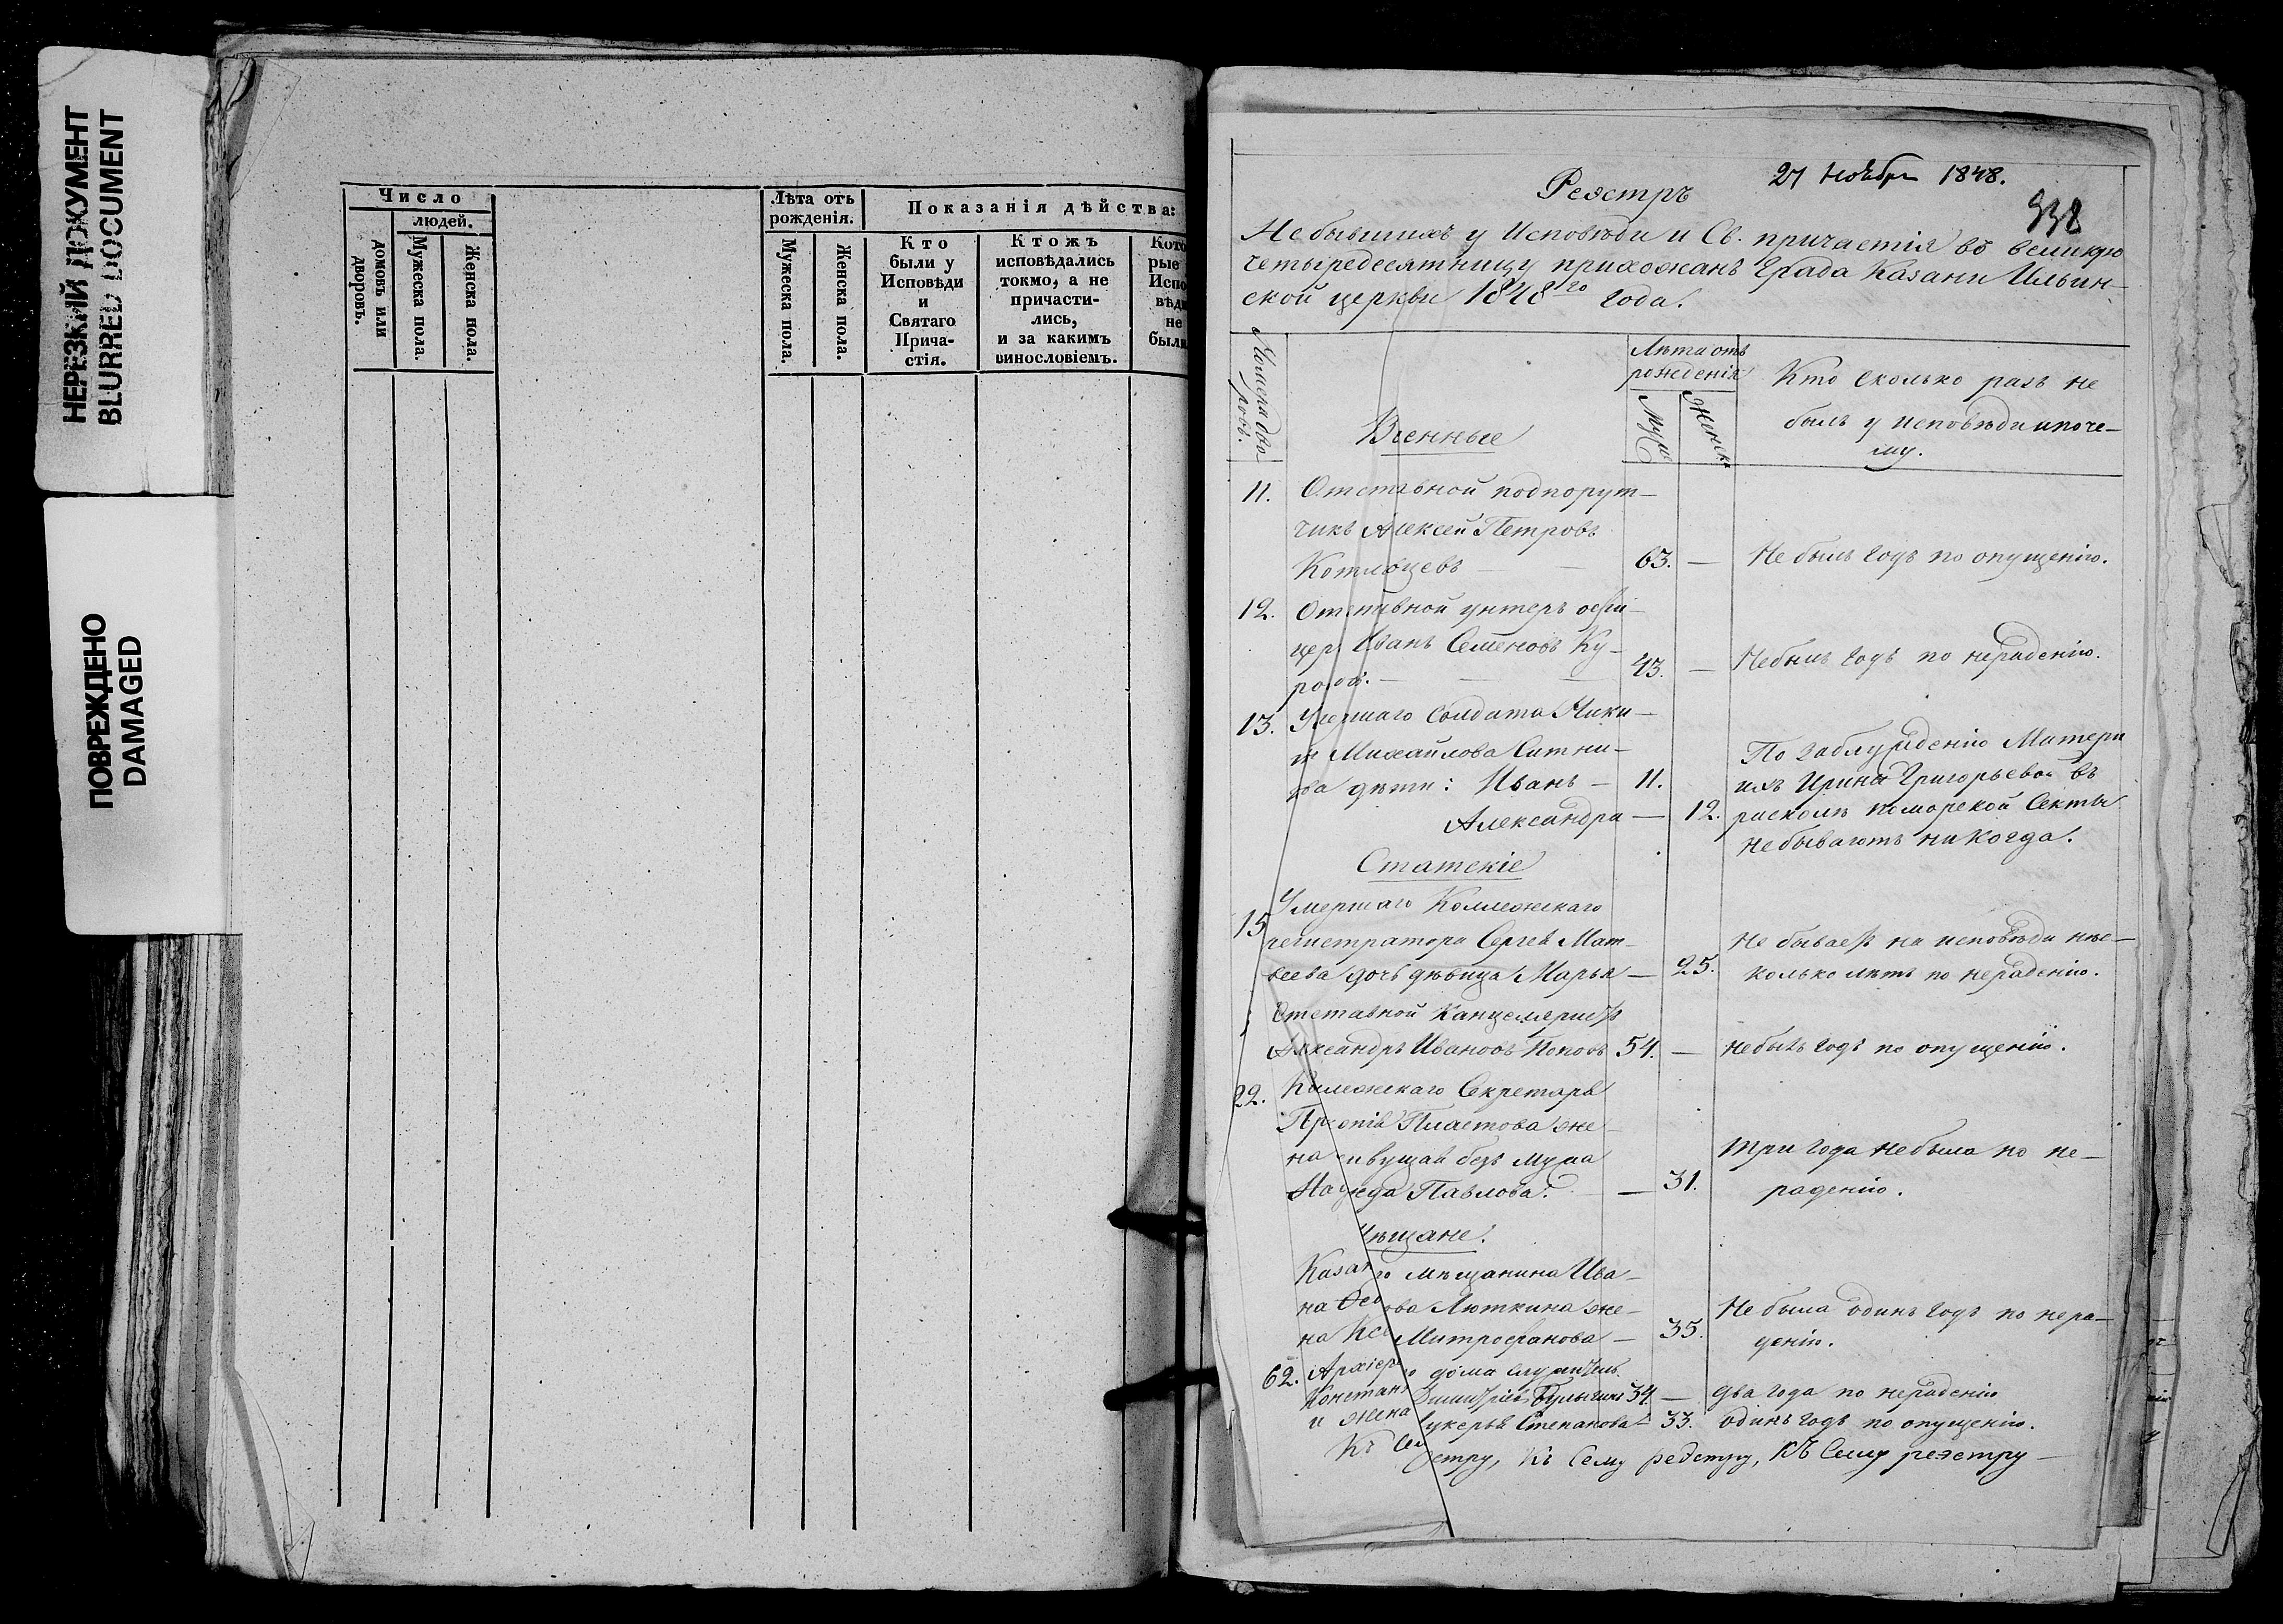 НЕРЕЗКИЙ ДОКУМЕНТ
BLURRED DOCUMENT
ПОВРЕЖДЕНО
DAMAGED
Число
людей.
домовъ или
дворовъ.
Мужеска пола.
Женска пола.
Лѣта отъ
рожденія.
Мужеска пола.
Женска пола.
Показанія дѣйства:
Кто
были у
Исповѣди
и
Святаго
Прича-
стія.
Ктожъ
исповѣдались
токмо, а не
причасти-
лись,
и за какимъ
винословіемъ.
Кото
рые
Испо
вѣди
не
были
27 Ноября 1848.
Реэстръ
338
Не бывшихъ у Исповѣди и Св. причастія въ великую
четыредесятницу прихожанъ Града Казани Ильин-
ской церкви 1848го года.
Номера дво-
ровъ.
Военные
Лѣта отъ
рожденія
Муж
Женск
Кто сколько разъ не
былъ у исповѣди и поче-
му.
11. Отставной подпорут-
чикъ Алексей Петровъ
63. — Не былъ годъ по опущенію.
12. Отставной унтеръ офи-
церъ Иванъ Семеновъ Ку-
43. — Не былъ годъ по нерадению.
13. Умершаго Солдата Ники-
Михайлова Ситни-
дѣти: Иванъ — 11.
Александра — 12.
По заблужденію Матери
ихъ Ирины Григорьевой въ
расколъ поморской Секты
не бываютъ никогда.
Статскіе
15 Умершаго Коллежскаго
регистратора Сергея Мат-
веева дочь дѣвица Марья — 25.
Не бываетъ на исповѣди нѣс-
колько лѣтъ по нерадению.
Отставной Канцеляристъ
Александръ Ивановъ Поповъ 54. — не былъ годъ по опущенію.
22. Коллежскаго Секретаря
Пластова же-
на живущая безъ мужа
Надежда Павлова. — 31.
Три года не была по не-
радению.
Мѣщане.
мѣщанина Ива-
на Люткина же-
на Митрофанова — 35.
Не была одинъ годъ по нера-
дению.
62. дома служитель
Булыгинъ 34. — два года по нерадению
и жена Степанова — 33. одинъ годъ по опущенію.
Къ Сему реэстру, Къ Сему реэстру —